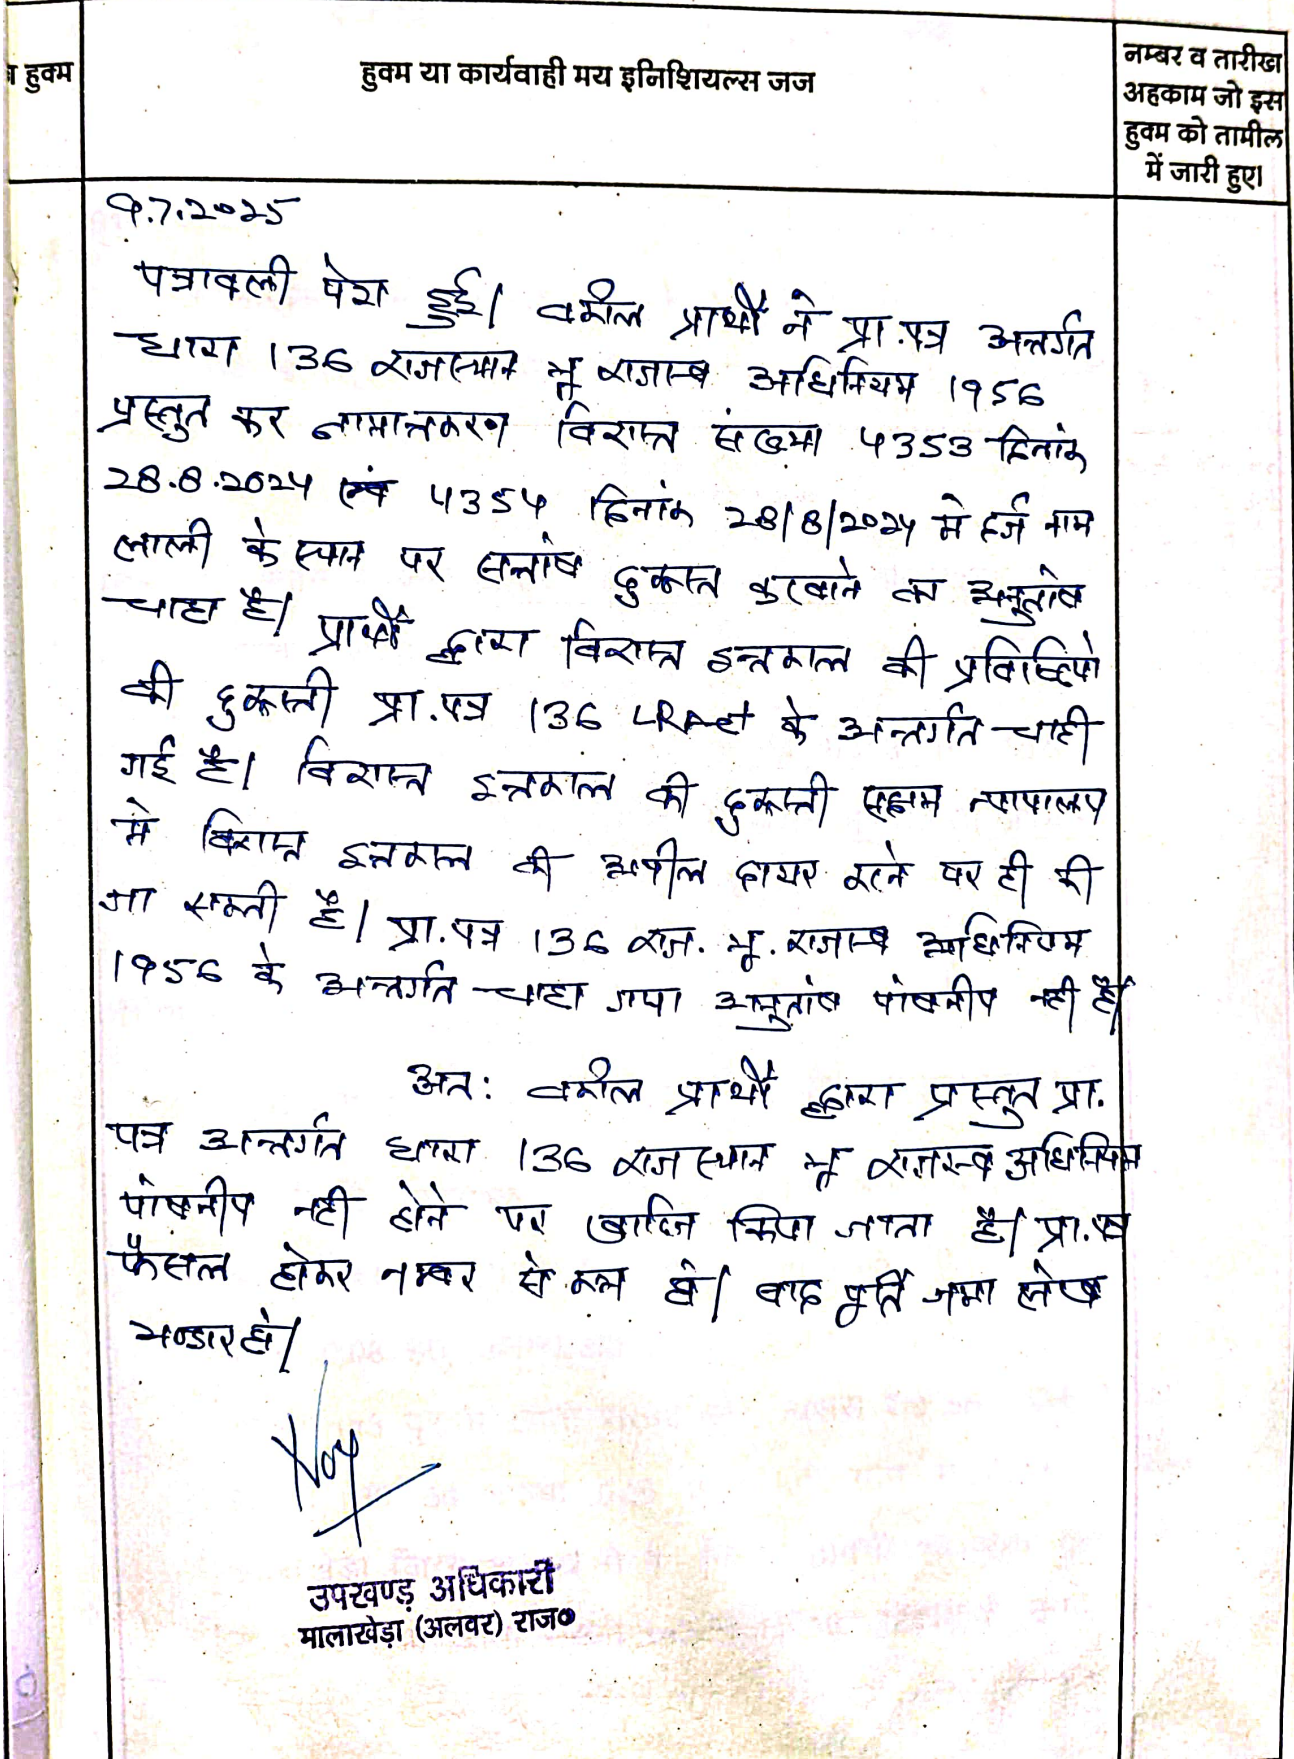 व हुक्म
हुक्म या कार्यवाही मय इनिशियल्स जज
नम्बर व तारीख
अहकाम जो इस
हुक्म को तामील
में जारी हुए।
9.7.2025
पत्रावली पेश हुई। वकील प्रार्थी ने प्रा.पत्र अन्तर्गत
धारा 136 राजस्थान भू राजस्व अधिनियम 1956
प्रस्तुत कर नामान्तकरण विरासत संख्या 4353 दिनांक
28.8.2024 एवं 4354 दिनांक 28/8/2024 मे दर्ज नाम
लाली के स्थान पर सन्तोष दुरूस्त करवाने का अनुतोष
चाहा है। प्रार्थी द्वारा विरासत इन्तकाल की प्रविष्टियो
की दुरूस्ती प्रा.पत्र 136 LRAct के अन्तर्गत चाही
गई है। विरासत इन्तकाल की दुरूस्ती सक्षम न्यायालय
मे विरासत इन्तकाल की अपील दायर करने पर ही की
जा सकती है। प्रा.पत्र 136 राज. भू. राजस्व अधिनियम
1956 के अन्तर्गत चाहा गया अनुतोष पोषनीय नही है।
अत: वकील प्रार्थी द्वारा प्रस्तुत प्रा.
पत्र अन्तर्गत धारा 136 राजस्थान भू राजस्व अधिनियम
पोषनीय नही होने पर खारिज किया जाता है। प्रा.पत्र
फैसल होकर नम्बर से कम हो। बाद पूर्ति जमा लेख
भण्डार हो।
उपखण्ड अधिकारी
मालाखेड़ा (अलवर) राज०